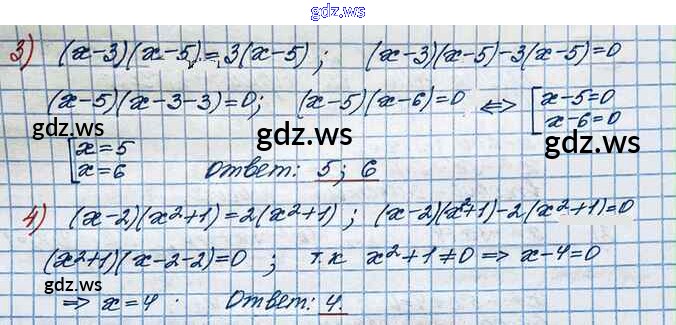 gdz.ws
3) (x-3)(x-5)=3(x-5); (x-3)(x-5)-3(x-5)=0
(x-5)(x-3-3)=0; (x-5)(x-6)=0 ⟺ [x-5=0
gdz.ws gdz.ws x-6=0
gdz.ws
[x=5
x=6 Ответ: 5; 6
4) (x-2)(x²+1)=2(x²+1); (x-2)(x²+1)-2(x²+1)=0
(x²+1)(x-2-2)=0; т.к x²+1≠0 ⟹ x-4=0
gdz.ws gdz.ws gdz.ws
⟹ x=4. Ответ: 4.